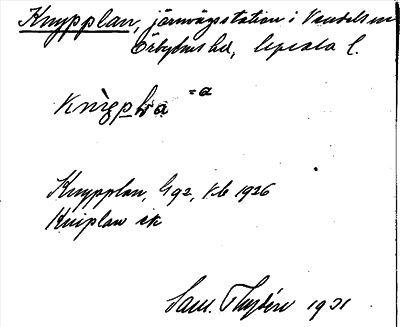 Knypplan, järnvägsstation i Vendels sn
Örbyhus hd, Uppsala l.
knìpla =a
Knypplan, G 92, Kb 1926
Kniplan ek
Sam. Thyfére 1931